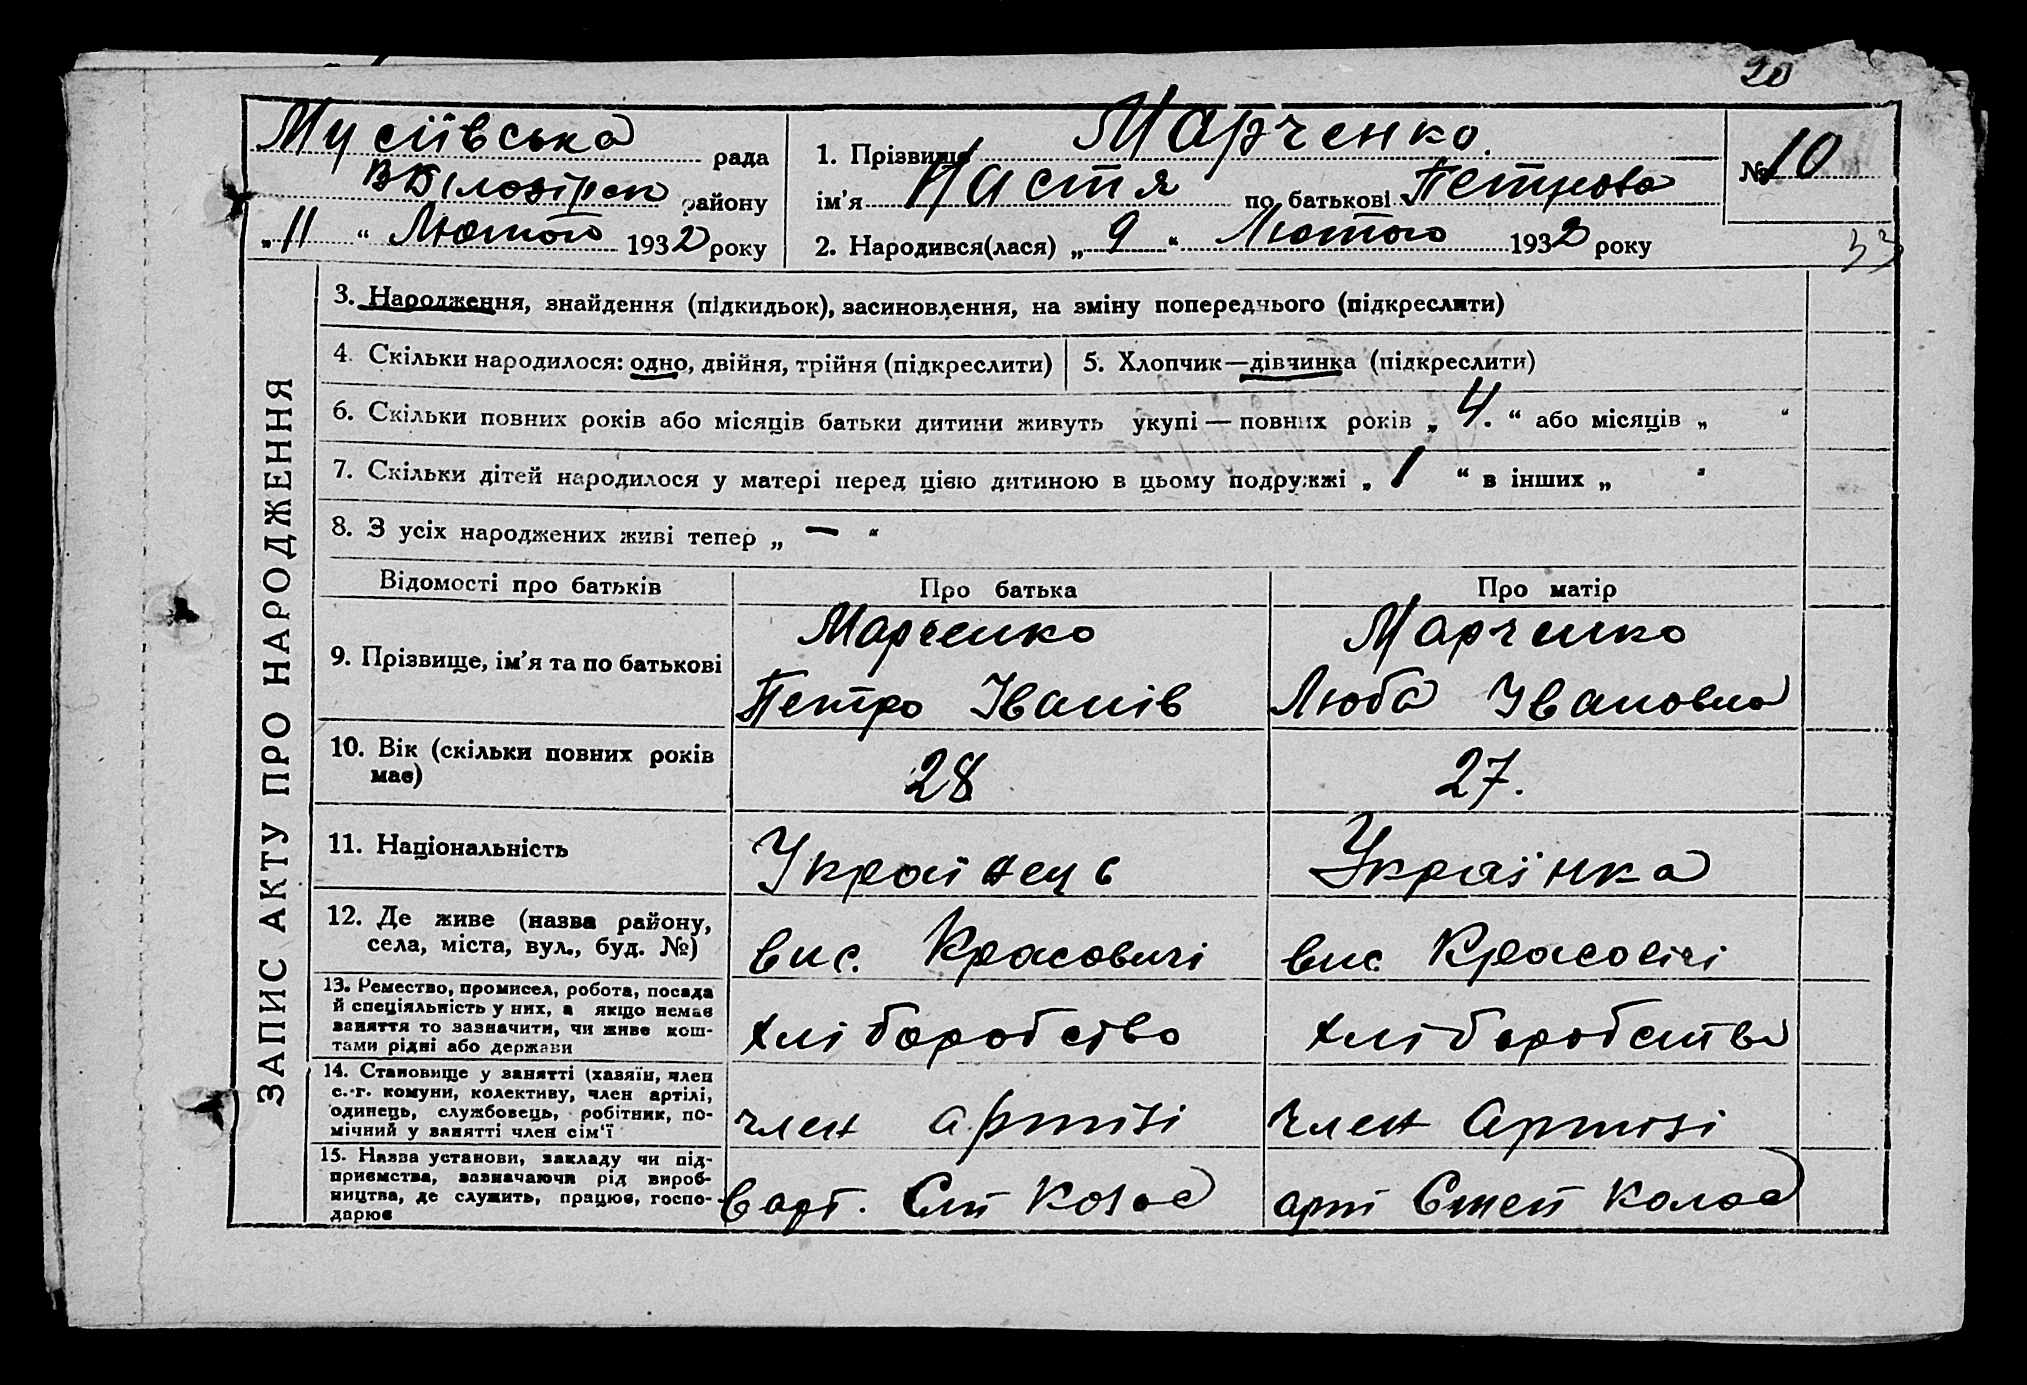 20
Мусіївська рада
В Білозірсн району
„ 11 “ Лютого 1932 року
1. Прізвище Марченко.
ім’я Настя по батькові Петрова
2. Народився(лася) „ 9 “ Лютого 1932 року
№ 10
33
ЗАПИС АКТУ ПРО НАРОДЖЕННЯ
3. Народження, знайдення (підкидьок), засиновлення, на зміну попереднього (підкреслити)
4. Скільки народилося: одно, двійня, трійня (підкреслити)
5. Хлопчик—дівчинка (підкреслити)
6. Скільки повних років або місяців батьки дитини живуть укупі — повних років „ 4. “ або місяців „ “
7. Скільки дітей народилося у матері перед цією дитиною в цьому подружжі „ 1 “ в інших „ “
8. З усіх народжених живі тепер „ — “
Відомості про батьків
Про батька
Про матір
9. Прізвище, ім’я та по батькові
Марченко
Петро Іванів
Марченко
Люба Івановна
10. Вік (скільки повних років
має)
28
27.
11. Національність
Українець
Українка
12. Де живе (назва району,
села, міста, вул., буд. №)
вис. Красовичі
вис. Красовічі
13. Ремество, промисел, робота, посада
й спеціяльність у них, а якщо немає
заняття то зазначити, чи живе кош-
тами рідні або держави
хліборобство
хліборобства
14. Становище у занятті (хазяїн, член
с.-г. комуни, колективу, член артілі,
одинець, службовець, робітник, по-
мічний у занятті член сім’ї
член артілі
Член Артілі
15. Назва установи, закладу чи під-
приємства, зазначаючи рід вироб-
ництва, де служить, працює, госпо-
дарює
в арт. Стп Колос
арт Степ Колос